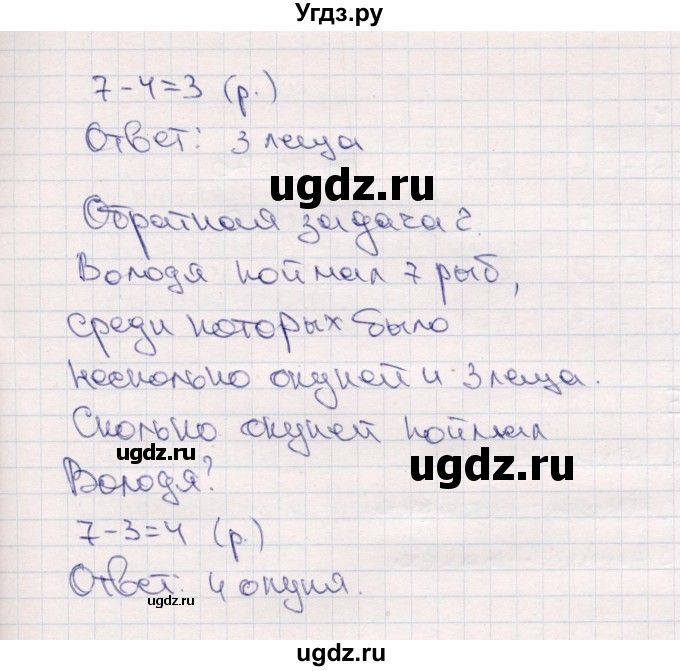 Угдз.ру
7-4=3 (р.)
Ответ: 3 леща
ugdz.ru
Обратная задача 2.
Володя поймал 7 рыб,
среди которых было
несколько окуней и 3 леща.
Сколько окуней поймал
ugdz.ru
ugdz.ru
Володя?
7-3=4 (р.)
Ответ: 4 окуня.
ugdz.ru
ugdz.ru